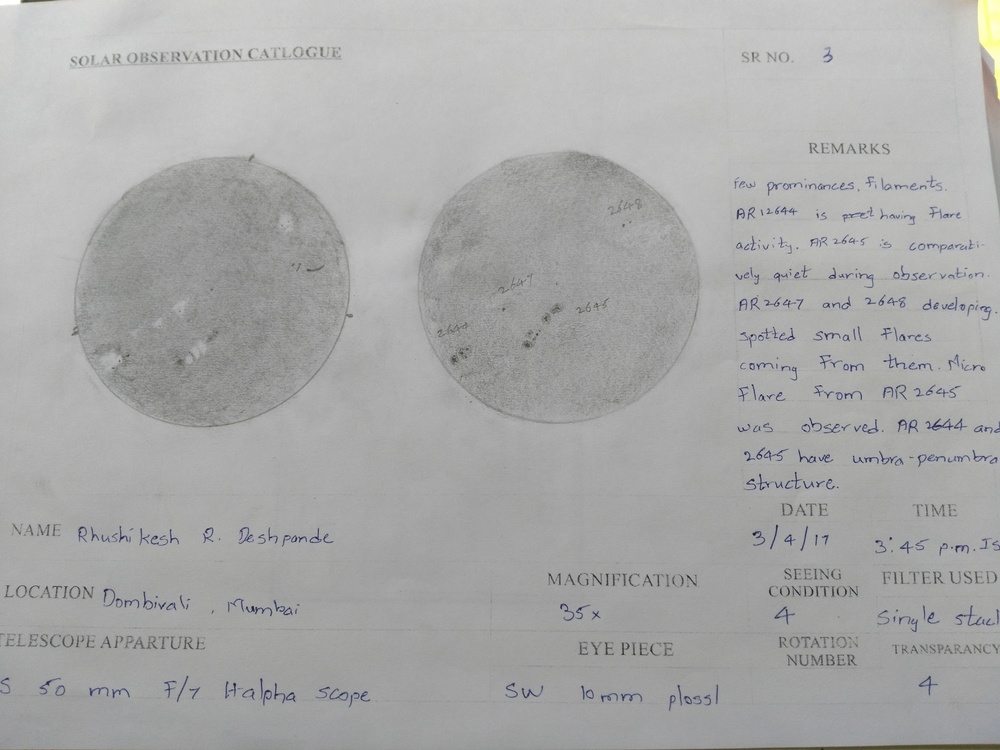 SOLAR OBSERVATION CATLOGUE
SR NO. 3
REMARKS
few prominances, filaments.
AR12644 is having Flare
activity. AR 2645 is comparati-
vely quiet during observation.
AR 2647 and 2648 developing.
spotted small flares
coming from them. Micro
Flare from AR 2645
was observed. AR 2644 and
2645 have umbra-penumbra
structure.
2648
2647
2645
2644
DATE
3/4/17
TIME
3:45 p.m. IS
NAME Rhushikesh R. Deshpande
LOCATION Dombivali, Mumbai
MAGNIFICATION
35x
SEEING
CONDITION
4
FILTER USED
Single stack
TELESCOPE APPARTURE
S 50 mm F/7 Halpha scope
EYE PIECE
SW 10mm plossl
ROTATION
NUMBER
TRANSPARANCY
4